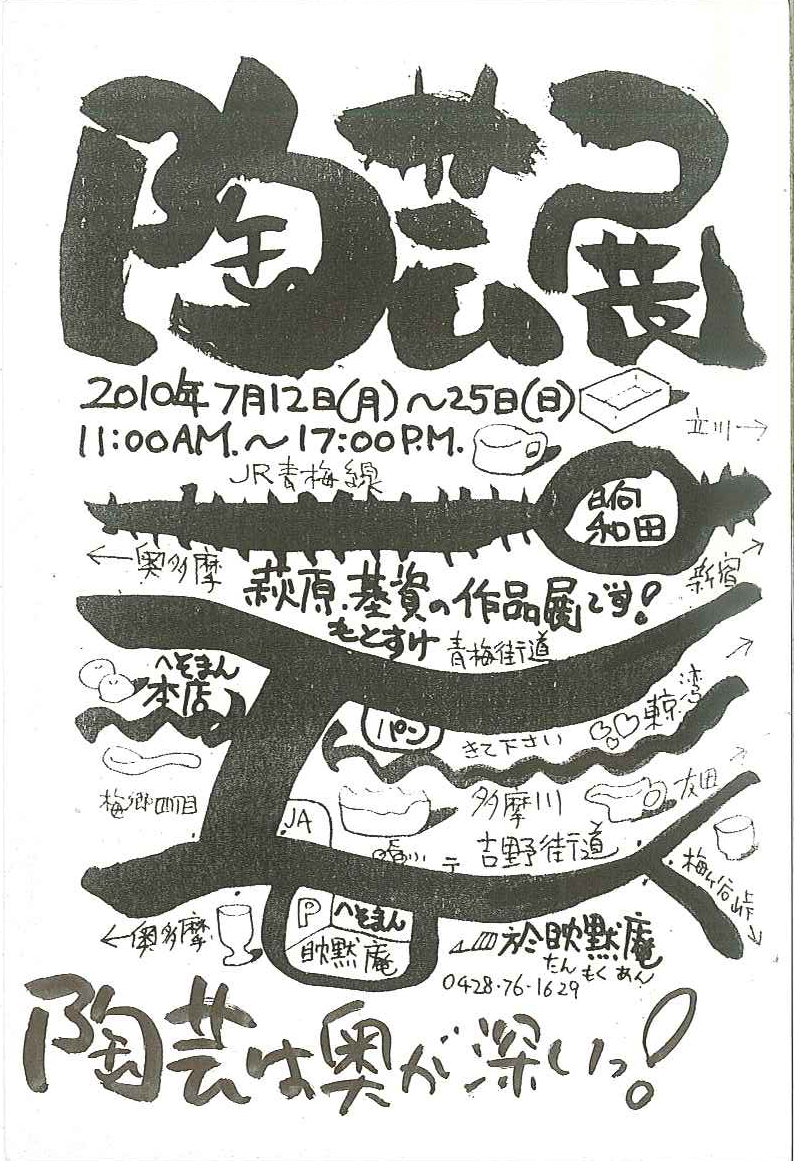 陶芸展
2010年7月12日(月)～25日(日)
11:00AM.～17:00P.M.
立川→
JR青梅線
日向
和田
←奥多摩
新宿
萩原.基資の作品展です!
もとすけ
青梅街道
へそまん
本店
パン
きて下さい
東京湾
梅郷四丁目
多摩川
友田
JA
吉野街道
梅ヶ谷峠
P
へそまん
←奥多摩
黙庵
於
黙庵
たんもくあん
0428-76-1629
陶芸は奥が深いっ!